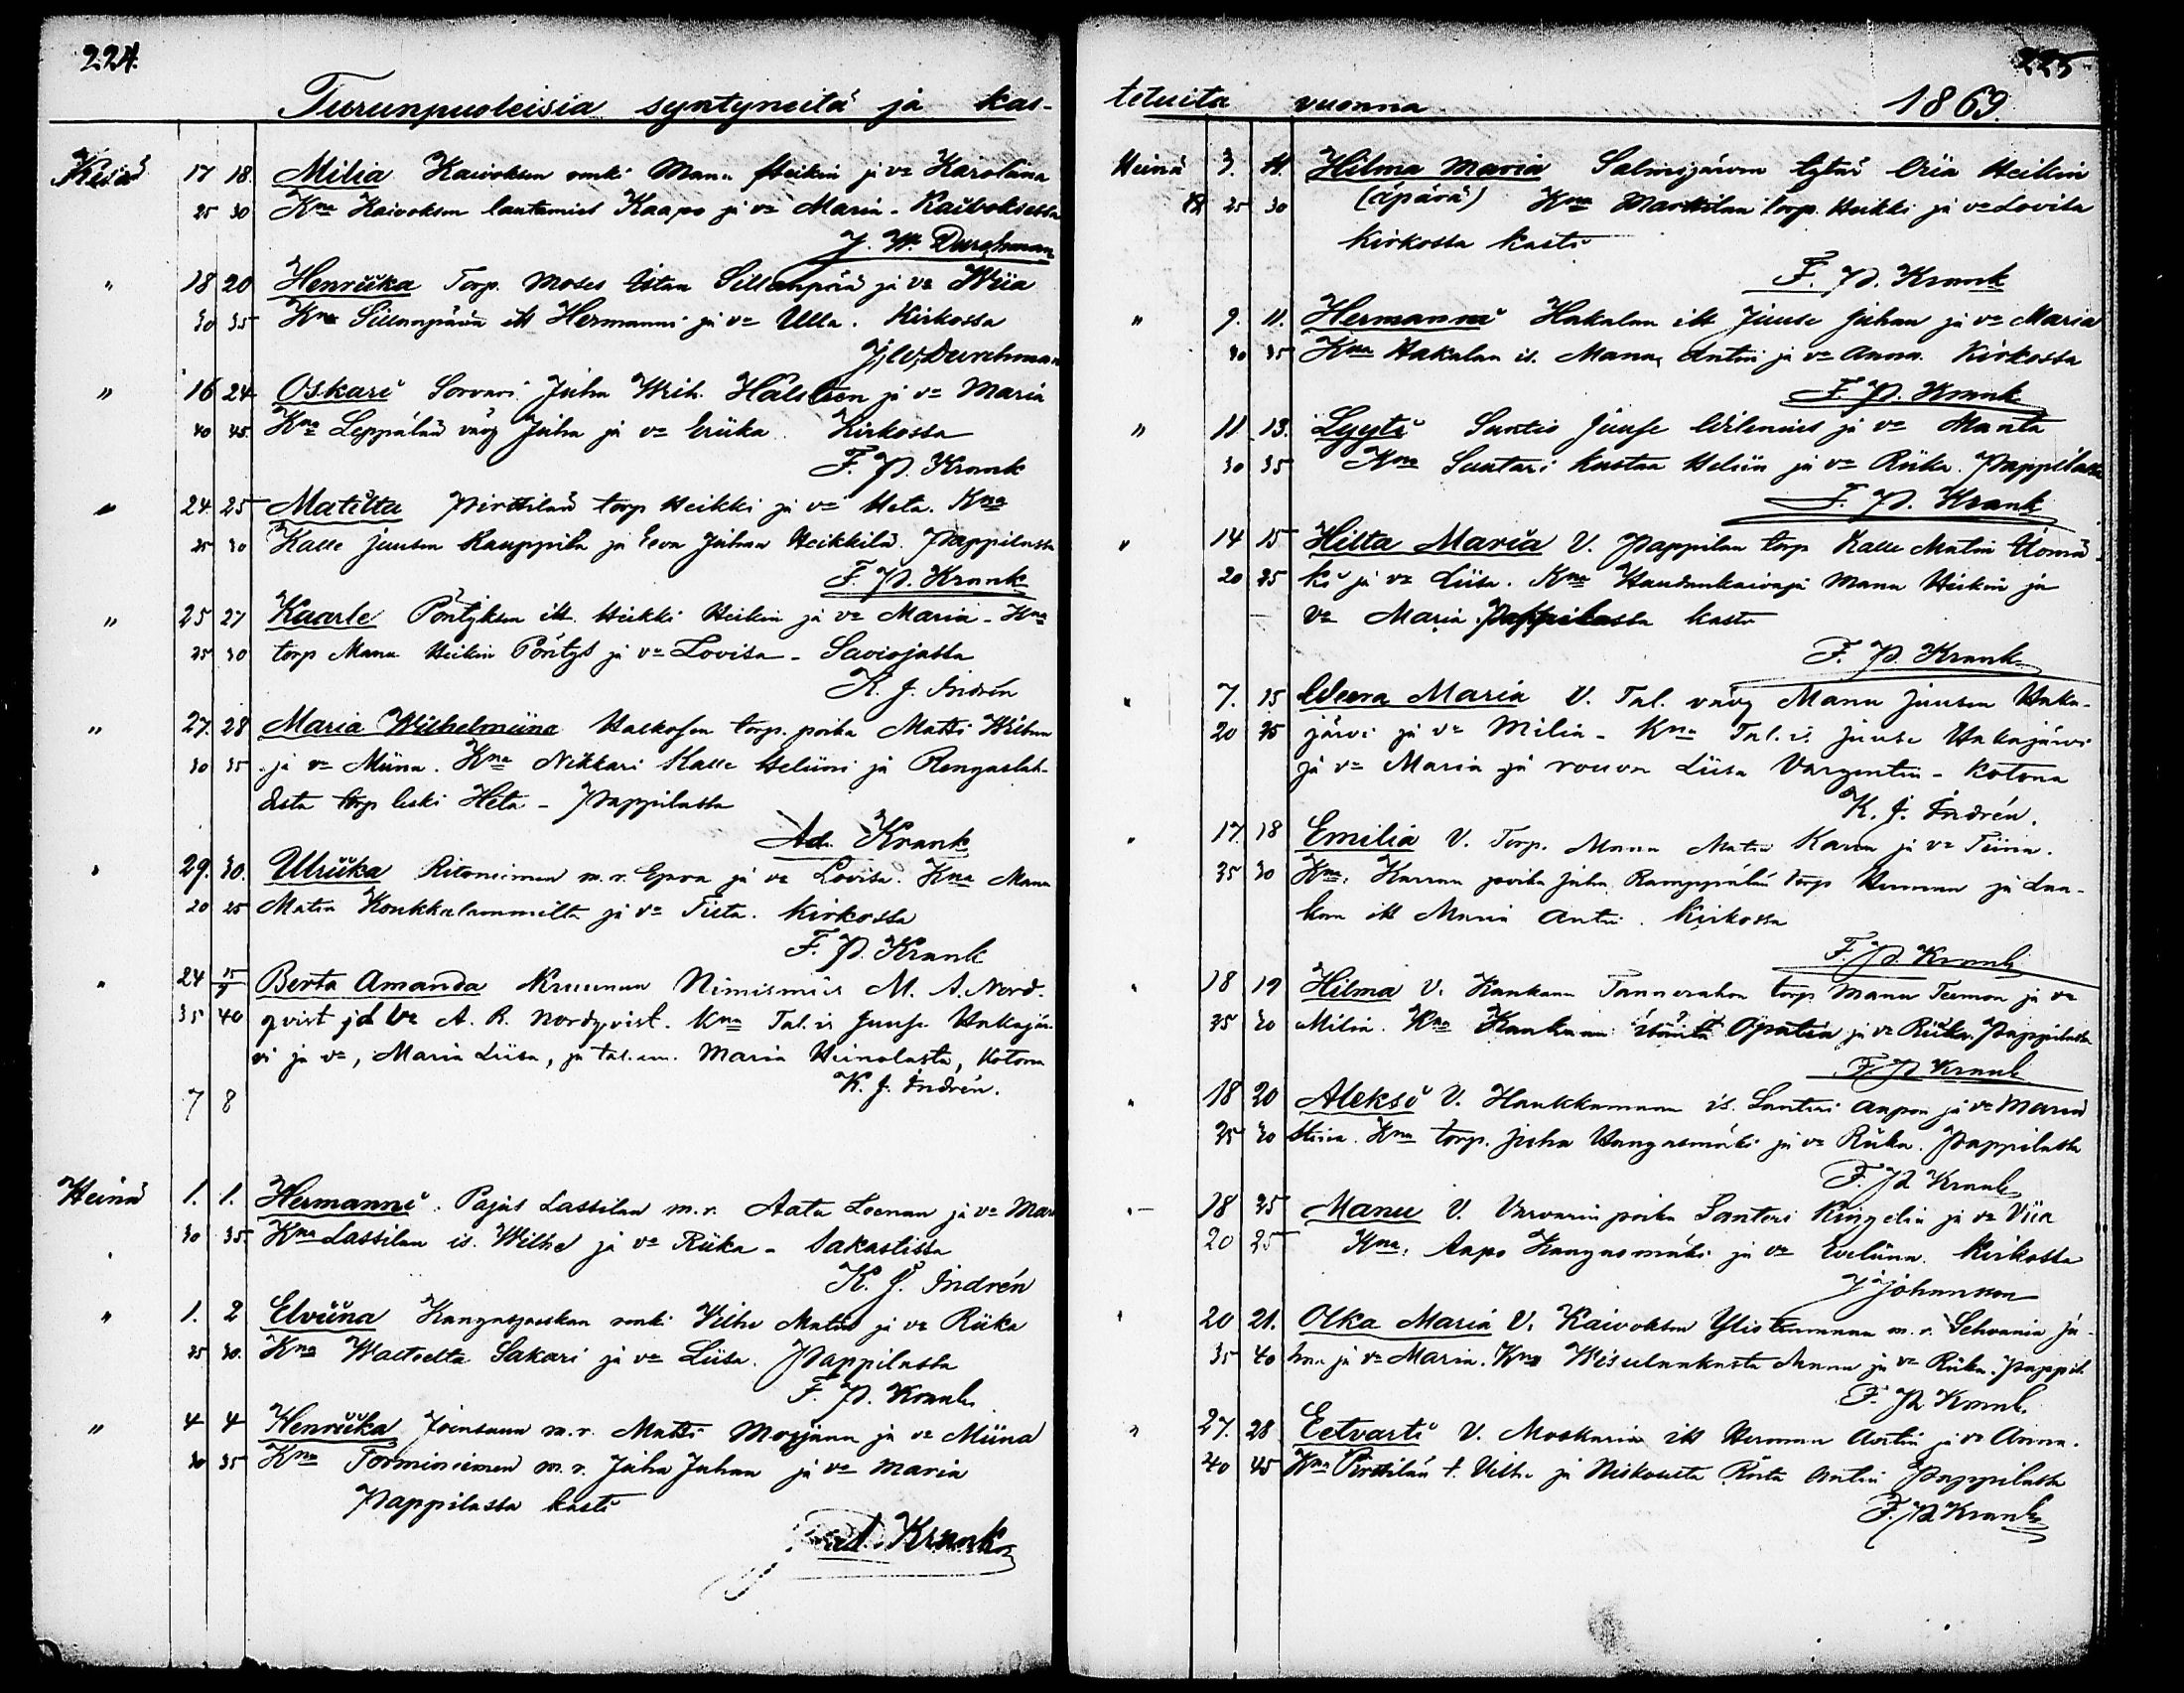 224.
Turunpuoleisia syntyneitä ja kas-
Kesä 17 18. Milia Kaivoksen renki Manu Heikin ja vo Karolina
25 30 Kna Kaivoksen lautamies Kaapo ja vo Maria - Kaivoksessa
J. W. Durchman
" 18 20 Henriika Torp. Moses Sillanpää ja vo Wiia
30 35 Kna Sillanpään itt Hermanni ja vo Ulla. Kirkossa
J. W. Durchman
" 16 24 Oskari Sorvari Juha Wilh. Hålsteen ja vo Maria
40 45. Kna Leppälän väv Juha ja vo Eriika. Kirkossa
F. P. Krank
" 24. 25 Matilta Pirttilän torp Heikki ja vo Heta. Kna
25 30 Kalle Juusen Kauppila ja Eeva Juhan Heikkilä. Pappilassa
F. P. Krank
" 25 27 Kaarle Pöntyksen itt. Heikki Heikin ja vo Maria - Kna
25 30 torp Manu Heikin Pöntys ja vo Lovisa - Saviojassa
K. J. Indrén
" 27. 28 Maria Wilhelmiina torp. poika Matti Wilhen
30 35 ja vo Miina. Kna Nikkari Kalle Heliini ja Rengaslah-
desta torp leski Heta - Pappilassa
Ad. Krank
" 29. 30. Ulriika Ritoniemen m.r. ja vo Lovisa. Kna Manu
20 25 Matin Koukkulammilta ja vo Tiita. Kirkossa
F. P. Krank
" 24 15/7 Berta Amanda Kruunun Nimismies M. A. Nord-
35 40 qvist ja vo A. R. Nordqvist. Kna Tal. is Juuse Hakajär-
vi ja vo, Maria Liisa, ja tal. em. Maria Heinolasta, Kotona
K. J. Indrén.
7 8
Heinä 1. 1. Hermanni. Pajus Lassilan m.r. Aatu Leenan ja vo Mar
30 35. Kna Lassilan is. Wilhe ja vo Riika - Sakastissa
K. J. Indrén
" 1. 2 Elviina renki Wilhe Matin ja vo Riika
25 30. Kna Sakari ja vo Liisa. Pappilassa
F. P. Krank
" 4 4 Henriika Joensuun m.r. Matti ja vo Miina
30 35 Kna Torminiemen m.r. Juha Juhan ja vo Maria
Pappilassa kasti
Krank
225
tetuita vuonna 1869.
Heinä 3. 11. Hilma Maria Salmijärven tytär Heikin
25 30 (äpärä) Kna Marttilan torp. Heikki ja vo Lovisa
Kirkossa kasti
F. P. Krank
" 9. 11. Hermanni Hakalan itt Juuse Juhan ja vo Maria
30 35 Kna Hakalan is. Manu Antin ja vo Anna. Kirkossa
F. P. Krank
" 11 13. Lyyti Suntio Juuse Wilenius ja vo Manta
30 35 Kna Suutari Kustaa Heliin ja vo Riika. Pappilassa
F. P. Krank
" 14 15 Hilta Maria V. Pappilan torp Kalle Matin
20 25 ki ja vo Liisa. Kna Haudankaivaja Manu Heikin ja
vo Maria. Pappilassa kasti
F. P. Krank
" 7. 15 Weera Maria V. Tal. väv Manu Juusen Haka-
20 25 järvi ja vo Milia - Kna Tal. is. Juuse Hakajärvi
ja vo Maria ja rouva Liisa Vargentin - Kotona
K. J. Indrén.
" 17. 18 Emilia V. Torp. Manu Matin ja vo Tiina.
25 30 Kna. poika Juha, torp Herman ja Laa-
itt Maria Antin. Kirkossa
F. P. Krank
" 18 19 Hilma V. Kankaan Tannerahon torp. Manu Teemon ja vo
25 30 Milia. Kna ja vo Riika. Pappilassa
F. P. Krank
" 18 20 Aleksi V. is. Santeri Aapon ja vo Maria
25 30 Kna torp. Juha Kangasmäki ja vo Riika. Pappilassa
F. P. Krank
" 18 25 Manu V. poika Santeri Ringelin ja vo Viia
20 25 Kna. Aapo Kangasmäki ja vo Eveliina. Kirkossa
J Johansson
" 20 21. Olka Maria V. Kaivoksen m.r. Ju-
35 40 ha ja vo Maria. Kna Manu ja vo Riika. Pappil.
F. P. Krank.
" 27. 28 Eetvarti V. Moskarin itt Herman Antin ja vo Anna.
40 45 Kna Pirttilän t. Wilhe ja Antin Pappilassa
F. P. Krank